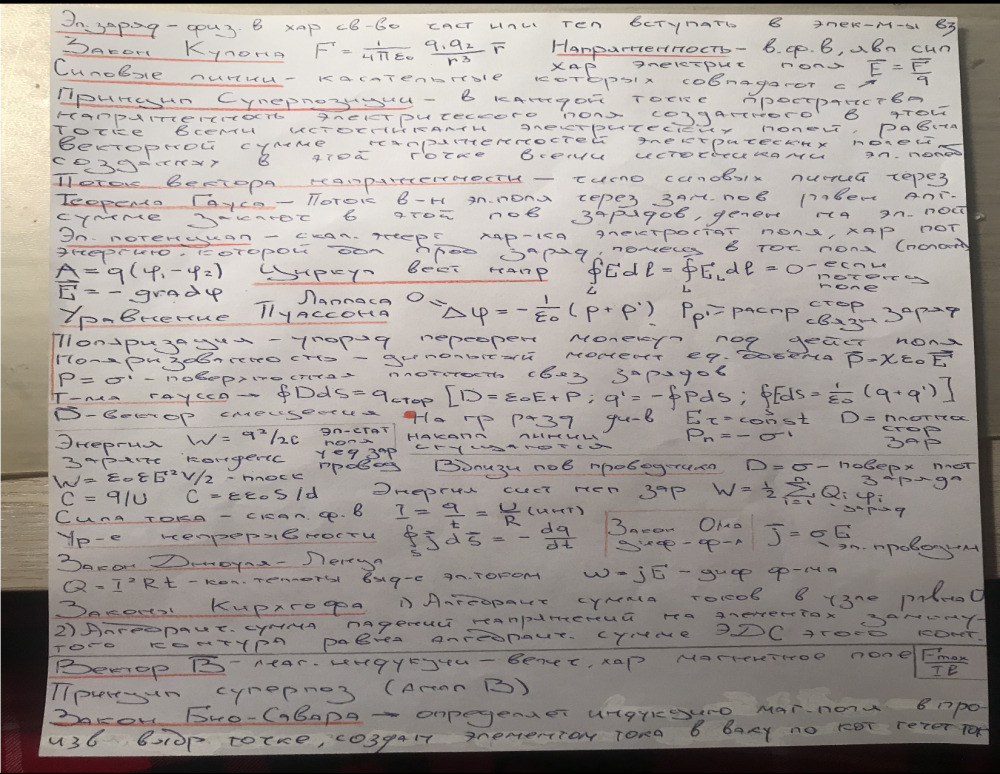 Эл. заряд – физ. в хар св-во част или тел вступать в элек-м-ы вз
Закон Кулона F = 1/4πε₀ q₁q₂/r³ r̄ Напряженность – в.ф.в, явл сил
хар электрич поля Ē = F̄/q
Силовые линии – касательные которых совпадают с
Принцип Суперпозиции – в каждой точке пространства
напряженность электрического поля созданного в этой
точке всеми источниками электрических полей, равна
векторной сумме напряженностей электрических полей
созданных в этой точке всеми источниками эл. полей
Поток вектора напряженности – число силовых линий через
Теорема Гауса – Поток в-н эл.поля через зам.пов равен алг-
сумме заключ в этой пов зарядов, делен на эл. пост
Эл. потенциал – скал. энерг хар-ка электростат поля, хар пот
энергию, которой обл проб заряд, помещ в точ. поля (полож)
A = q(φ₁-φ₂) Циркул вект напр ∮Edl = ∮E_L dl = 0 – если
потенц
поле
Ē = - gradφ
Уравнение Лапласа 0=
Пуассона Δφ = -1/ε₀ (ρ+ρ') ρ, ρ' = распр стор
связн заряд
Поляризация – упоряд переориен молекул под дейст поля
Поляризованность – дипольный момент ед. объема P̄=χε₀Ē
P = σ' – поверхностная плотность связ зарядов
Т-ма гаусса → ∮DdS = q стор [D = ε₀E+P; q' = -∮PdS; ∮EdS = 1/ε₀ (q+q')]
D – вектор смещения На гр разд ди-в Eτ = const D = плотнос
стор
зар
накапл линии Pn = - σ'
сгущаются
Энергия W = q²/2C эл-стат
поля
уед зар
провод
заряж конденс
W = ε₀εE²V/2 – плоск Вблизи пов проводника D = σ – поверх плот
заряда
C = q/U C = εε₀S/d Энергия сист неп зар W = 1/2 Σ Qᵢ φᵢ
заряд
Сила тока – скал. ф. в I = q/t = U/R (инт)
Ур-е непрерывности ∮ j̄ ds̄ = - dq/dt Закон Ома
диф-ф-л j̄ = σE
эл. проводим
Закон Джоуля-Ленца
Q = I²Rt – кол. теплоты выд-е эл.током w = jE – диф ф-ма
Законы Кирхгофа 1) Алгебраич сумма токов в узле равна 0
2) Алгебраич. сумма падений напряжений на элементах замкну-
того контура равна алгебраич. сумме ЭДС этого конт.
Вектор B̄ – маг. индукции – велич, хар магнитное поле Fmax/Il
Принцип суперпоз (Анал B)
Закон Био-Савара → определяет индукцию маг.поля в про-
изв выбр точке, создан элементом тока в ваку по кот течет ток